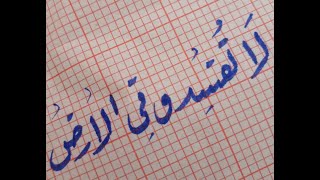 لَا تُفسِدُو فِي الاُرضُ